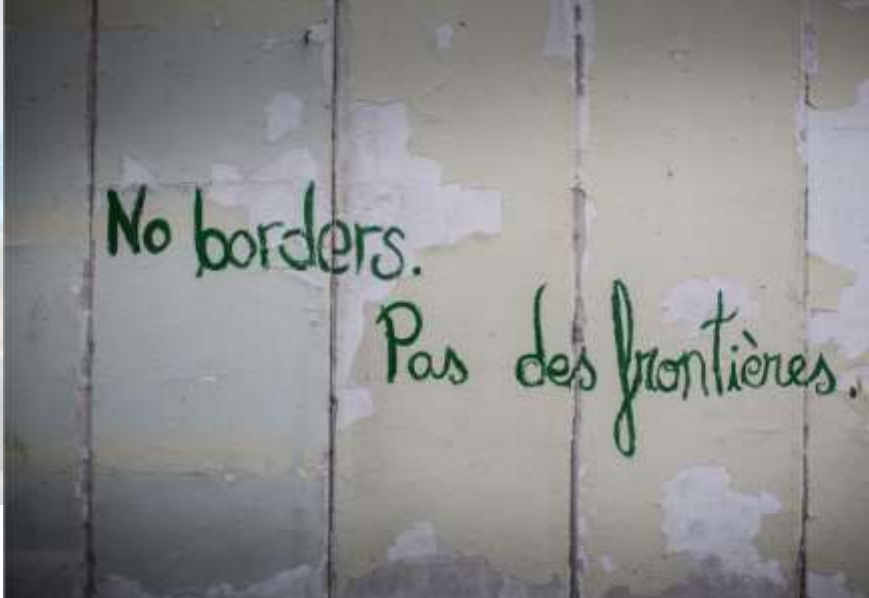 No borders.
Pas des frontières.